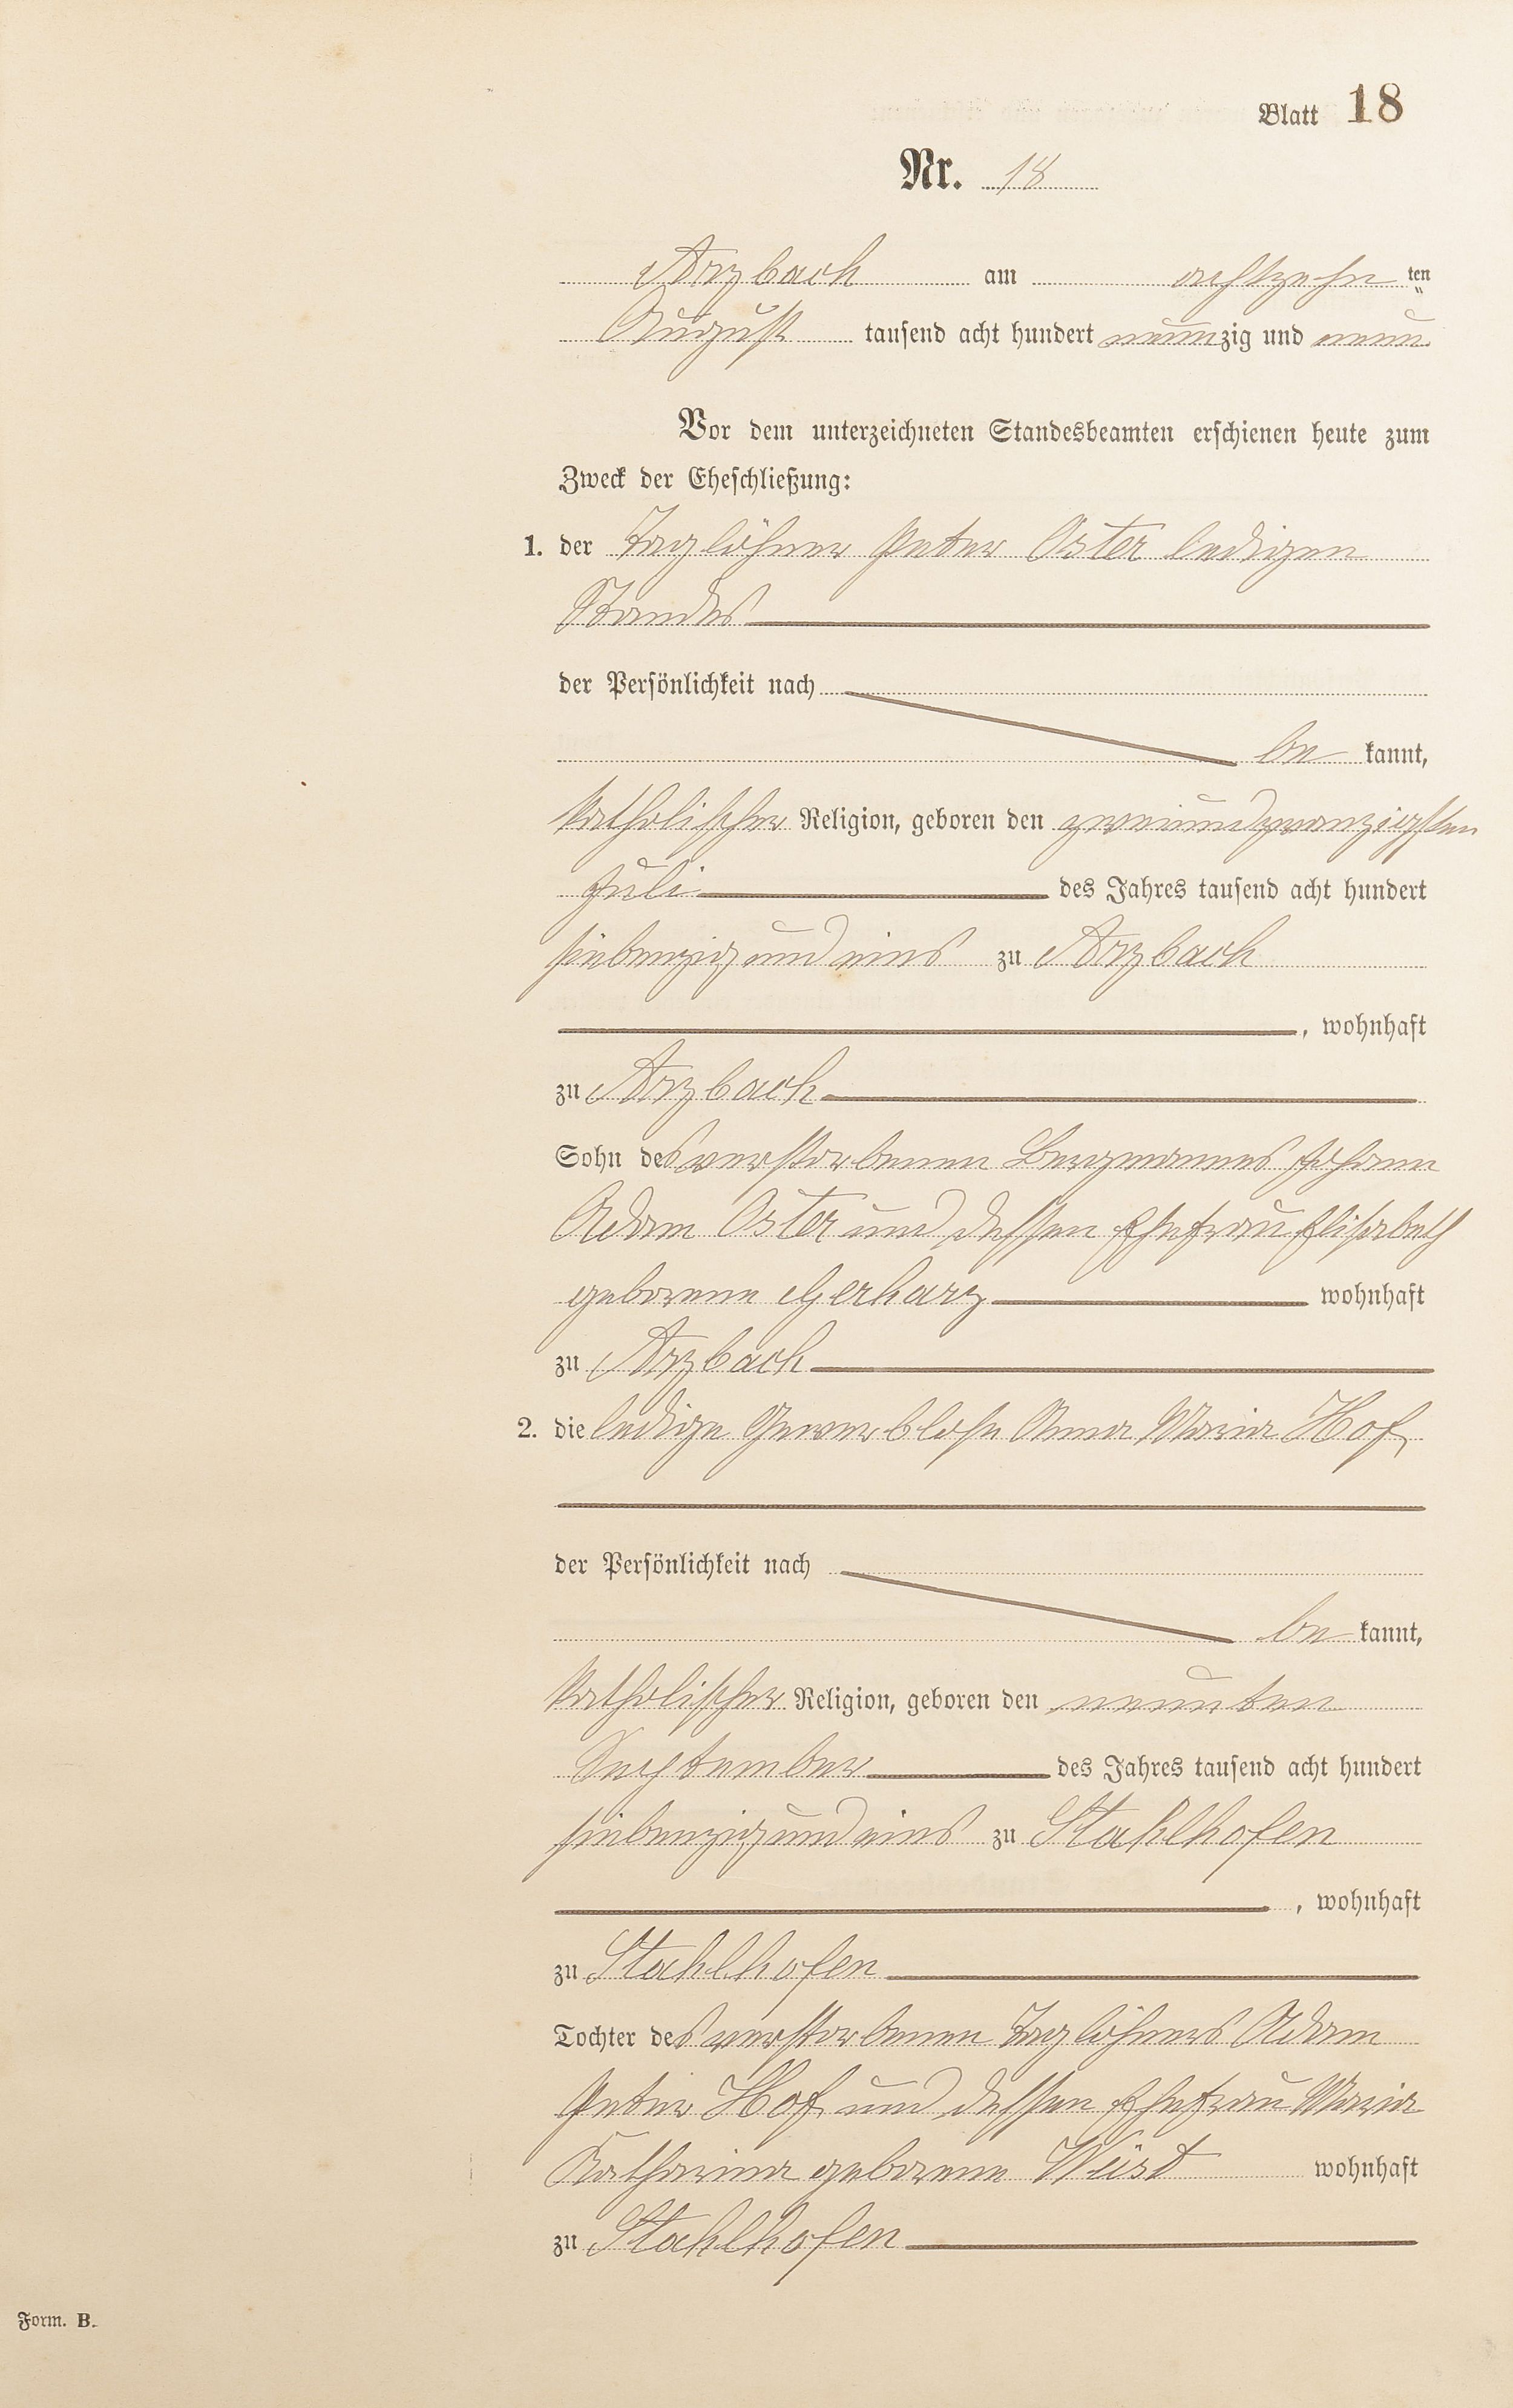 Blatt 18
Nr. 18
Arzbach am achtzehn ten
August tausend acht hundert neunzig und neun
Vor dem unterzeichneten Standesbeamten erschienen heute zum
Zweck der Eheschließung:
1. der Taglöhner Peter Oster ledigen
Standes
der Persönlichkeit nach
be kannt,
katholischer Religion, geboren den zweiundzwanzigsten
Juli des Jahres tausend acht hundert
siebenzig und eins zu Arzbach
, wohnhaft
zu Arzbach
Sohn des verstorbenen Bergmannes Johann
Adam Oster und dessen Ehefrau Elisabeth
geborene Gerharz wohnhaft
zu Arzbach
2. die ledige Gewerblose Anna Maria Hof,
der Persönlichkeit nach
be kannt,
katholischer Religion, geboren den neunten
September des Jahres tausend acht hundert
siebenzig und eins zu Stahlhofen
, wohnhaft
zu Stahlhofen
Tochter des verstorbenen Taglöhners Adam
Peter Hof und dessen Ehefrau Maria
Katharina geborene Wüst wohnhaft
zu Stahlhofen
Form. B.